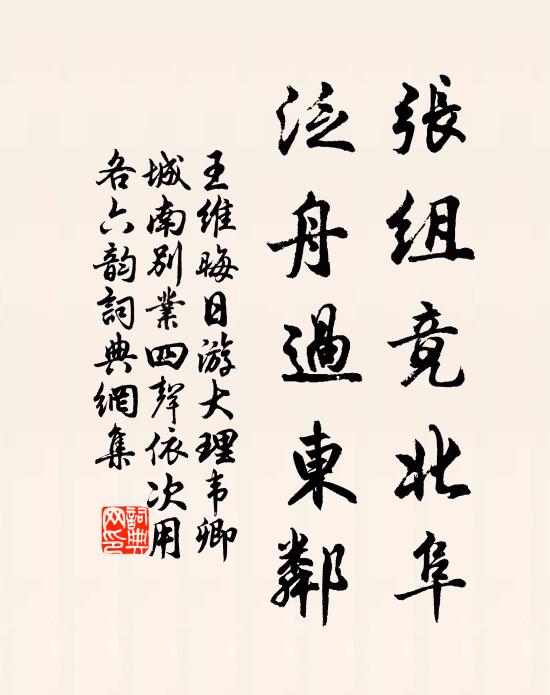 張組竟北阜
泛舟過東鄰
王維晦日游大理韦卿
城南别業四聲依次用
各六韵詞典網集
詞典网印